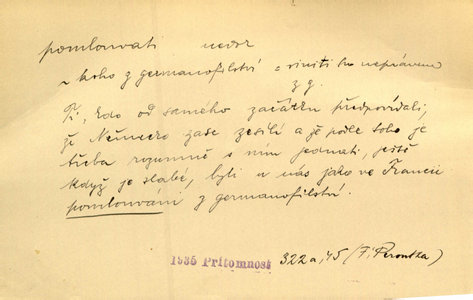 pomlouvati nedok
~ koho z germanofilství = viniti ho neprávem
z g.
Ti, kdo od samého začátku předpovídali,
že Německo zase zesílí a že podle toho je
třeba rozumně s ním jednati, ještě
když je slabé, byli u nás jako ve Francii
pomlouváni z germanofilství.
1935 Přítomnost 322a,45 (F. Peroutka)